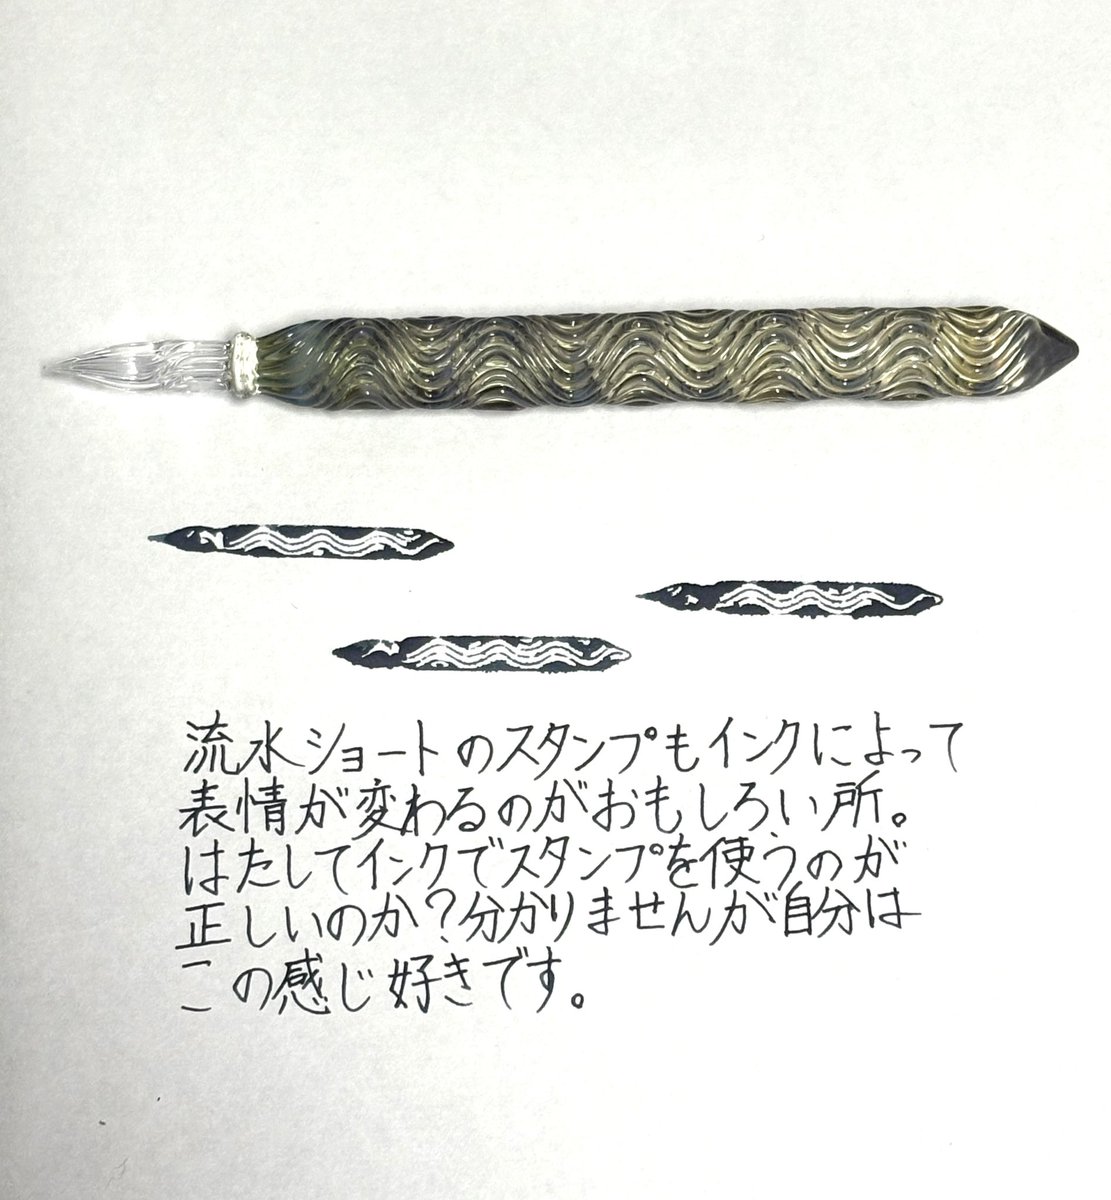 流水ショートのスタンプもインクによって
表情が変わるのがおもしろい所。
はたしてインクでスタンプを使うのが
正しいのか？分かりませんが自分は
この感じ好きです。